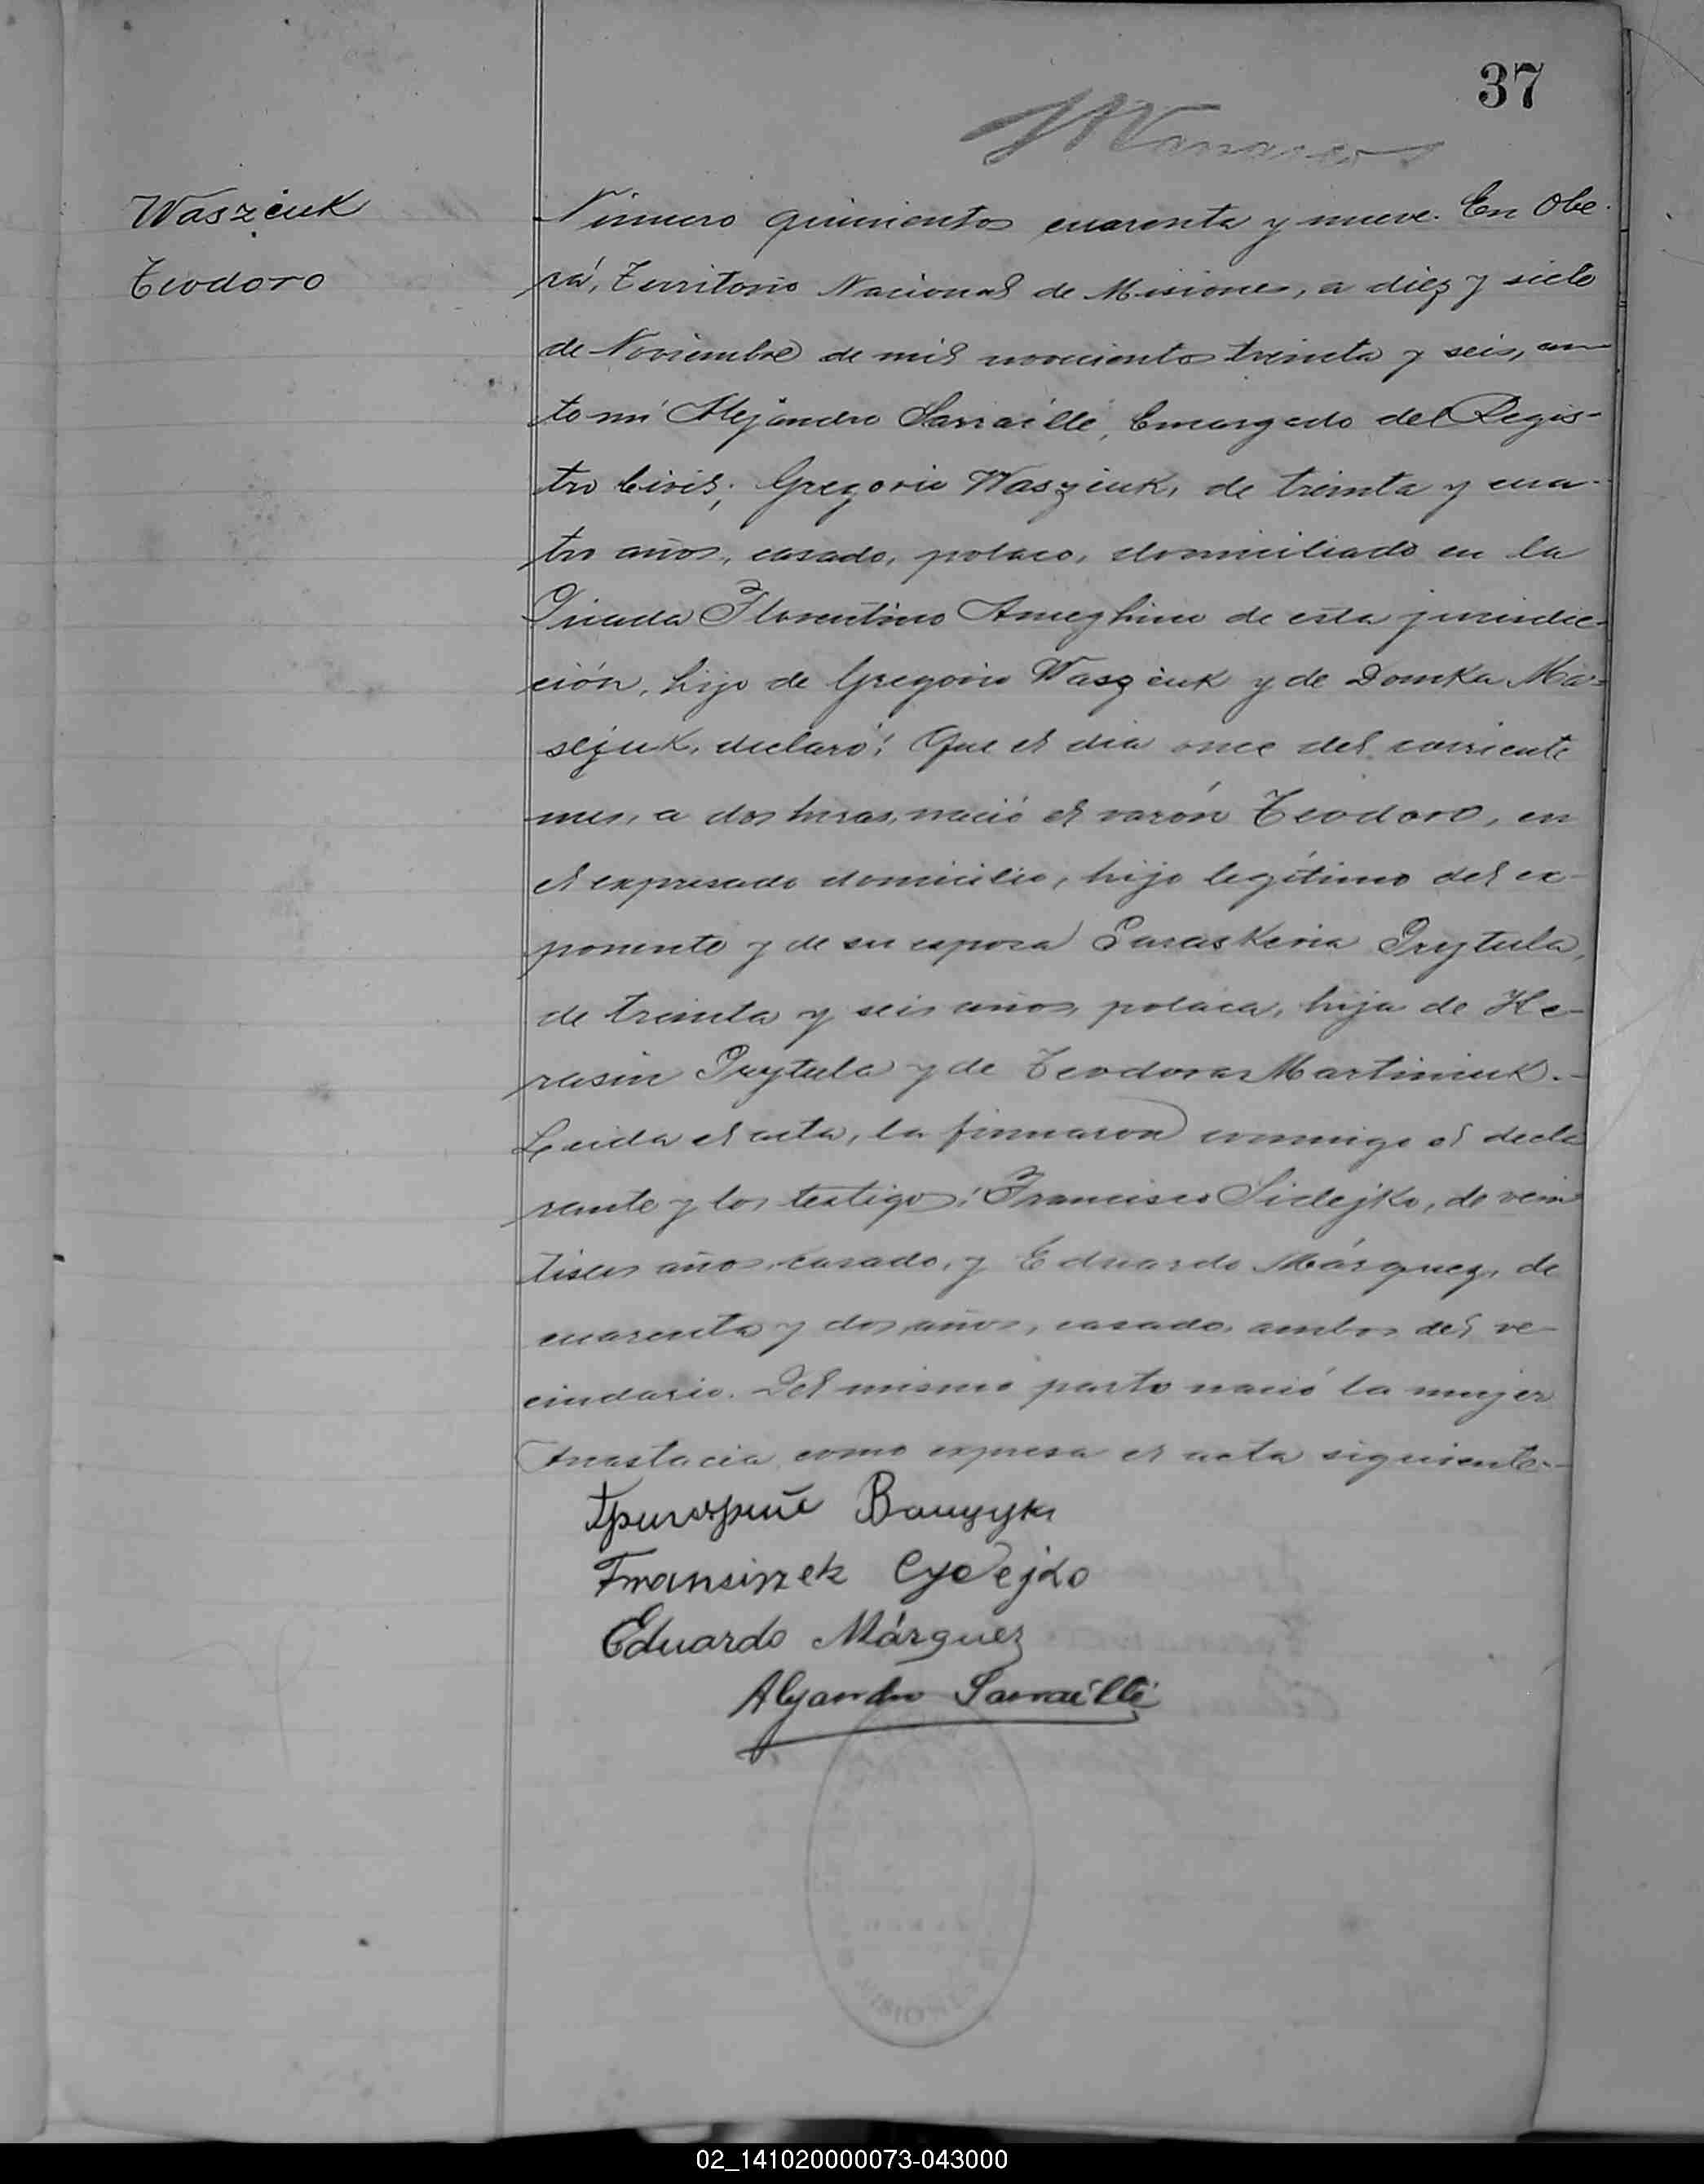 37
Waszciuk
Teodoro
Número quinientos cuarenta y nueve. En Obe-
rá, Territorio Nacional de Misiones, a diez y siete
de Noviembre de mil novecientos treinta y seis, an-
te mí Alejandro Sarraillé, Encargado del Regis-
tro Civil; Gregorio Waszciuk, de treinta y cua-
tro años, casado, polaco, domiciliado en la
Picada Florentino Ameghino de esta jurisdic-
ción, hijo de Gregorio Waszciuk y de Domka Ma-
sejuk, declaró: Que el día once del corriente
mes, a dos horas, nació el varón Teodoro, en
el expresado domicilio, hijo legítimo del ex-
ponente y de su esposa Paraskeria Prytula,
de treinta y seis años, polaca, hija de He-
rasin Prytula y de Teodora Martiniuk.-
Leida el acta, la firmaron conmigo el decla
rante y los testigos: Francisco Sidejko, de vein
tiseis años, casado, y Eduardo Márquez, de
cuarenta y dos años, casado, ambos del ve-
cindario. Del mismo parto nació la mujer
Anastacia, como expresa el acta siguiente.-
Григорий Ващук
Fransiszek Cydejko
Eduardo Márquez
Alejandro Sarraillé
MISIONES
02_141020000073-043000